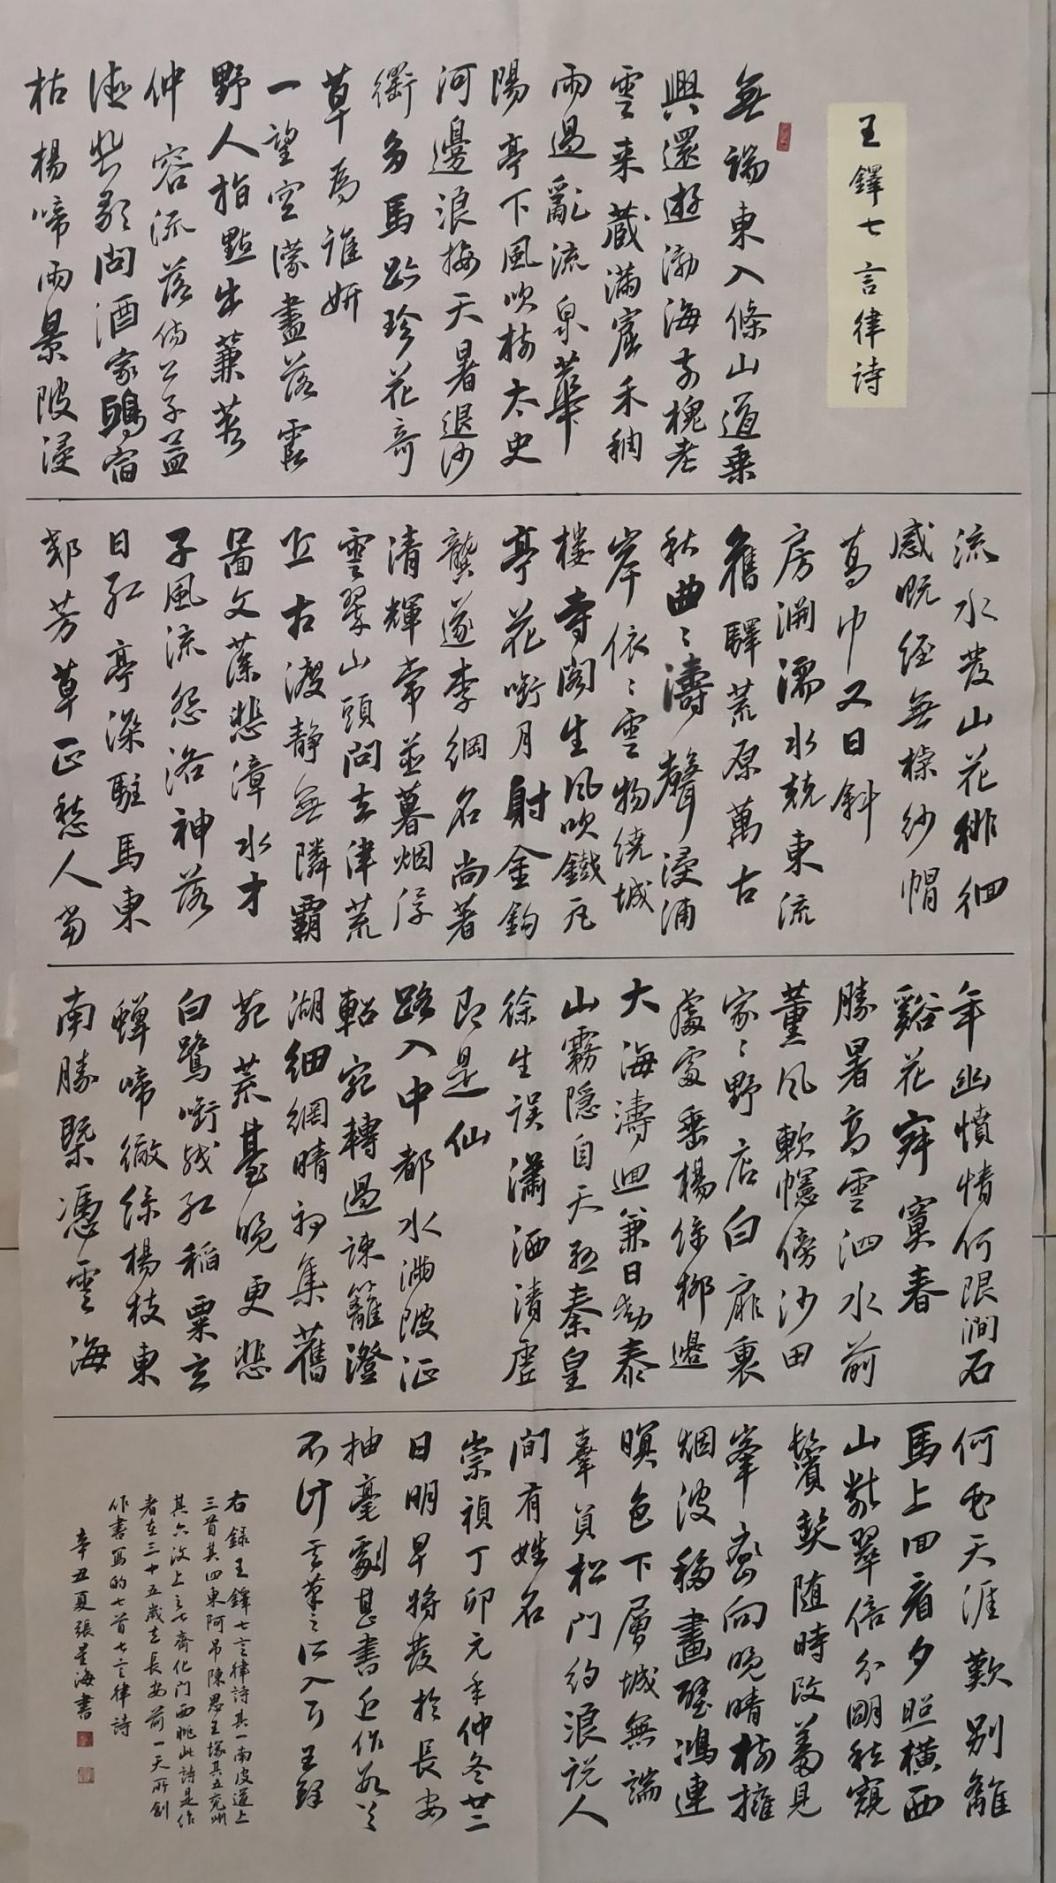 王鐸七言律詩
無端東入條山道乘
興還遊渤海
雲来蔵滿窟禾稠
雨過亂流泉華
陽亭下風吹樹太史
河邊浪挽天暑退沙
衢多馬跡珍花奇
草為誰妍
一望空濛盡落霞
野人指點出蒹葭
仲容流落傷公子益
德欷問酒家鷗宿
枯楊啼雨景陂浸
流水發山花徘徊
感既經無標紗帽
葛巾又日斜
房淵濡水兢東流
舊驛荒原萬古
秋曲〻濤聲浸浦
岸依〻雲物繞城
樓寺閣生風吹鐵瓦
亭花嘶月射金鈎
龔遂李綱名尚著
清輝常並暮烟浮
雲翠山頭問去津荒
丘古渡静無隣霸
圖文藻悲漳水才
子風流怨洛神落
日孤亭深駐馬東
郊芳草正愁人當
年幽憤情何限澗石
谿花寂寞春
勝暑高雲泗水前
薰風軟幰傍沙田
家〻野店白扉裏
處處垂楊綠柳邊
大海濤迴兼日動泰
山霧隱自天懸秦皇
徐生误瀟洒清虛
即是仙
路入中都水滿陂征
軺宛轉過疎籬澄
湖細網晴初集舊
苑荒臺晚更悲
白鷺嘶殘紅稻粟玄
蟬啼徹綠楊枝東
南勝槩憑雲海
何必天涯歎别離
馬上回看夕照横西
山嵐翠倍分明秋窺
鬢契随時改著見
峯巒向晚晴樹擁
烟波移畫壁鴻連
暝色下層城無端
辜負松門約浪說人
間有姓名
崇禎丁卯元年仲冬廿二
日明早將發於長安
抽毫劇甚書近作數首
不計工筆之所入可 王鐸
右錄王鐸七言律詩其一南皮道上
三首其四東阿吊陳思王塚其五兗州
其六汶上其七齊化门西眺此詩是作
者在三十五歲去長安前一天所創
作書写的七首七言律詩
辛丑夏張星海書